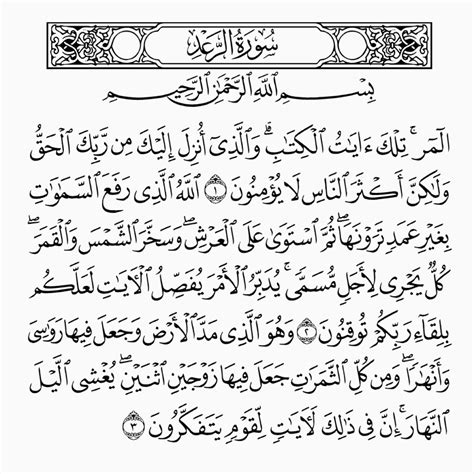 سُورَةُ الرَّعْدِ
بِسْمِ ٱللَّهِ ٱلرَّحْمَٰنِ ٱلرَّحِيمِ
الٓمٓر ۚ تِلْكَ ءَايَٰتُ ٱلْكِتَٰبِ ۗ وَٱلَّذِىٓ أُنزِلَ إِلَيْكَ مِن رَّبِّكَ ٱلْحَقُّ
وَلَٰكِنَّ أَكْثَرَ ٱلنَّاسِ لَا يُؤْمِنُونَ ١ ٱللَّهُ ٱلَّذِى رَفَعَ ٱلسَّمَٰوَٰتِ
بِغَيْرِ عَمَدٍ تَرَوْنَهَا ۖ ثُمَّ ٱسْتَوَىٰ عَلَى ٱلْعَرْشِ ۖ وَسَخَّرَ ٱلشَّمْسَ وَٱلْقَمَرَ ۖ
كُلٌّ يَجْرِى لِأَجَلٍ مُّسَمًّى ۚ يُدَبِّرُ ٱلْأَمْرَ يُفَصِّلُ ٱلْءَايَٰتِ لَعَلَّكُم
بِلِقَآءِ رَبِّكُمْ تُوقِنُونَ ٢ وَهُوَ ٱلَّذِى مَدَّ ٱلْأَرْضَ وَجَعَلَ فِيهَا رَوَٰسِىَ
وَأَنْهَٰرًا ۖ وَمِن كُلِّ ٱلثَّمَرَٰتِ جَعَلَ فِيهَا زَوْجَيْنِ ٱثْنَيْنِ ۖ يُغْشِى ٱلَّيْلَ
ٱلنَّهَارَ ۚ إِنَّ فِى ذَٰلِكَ لَءَايَٰتٍ لِّقَوْمٍ يَتَفَكَّرُونَ ٣